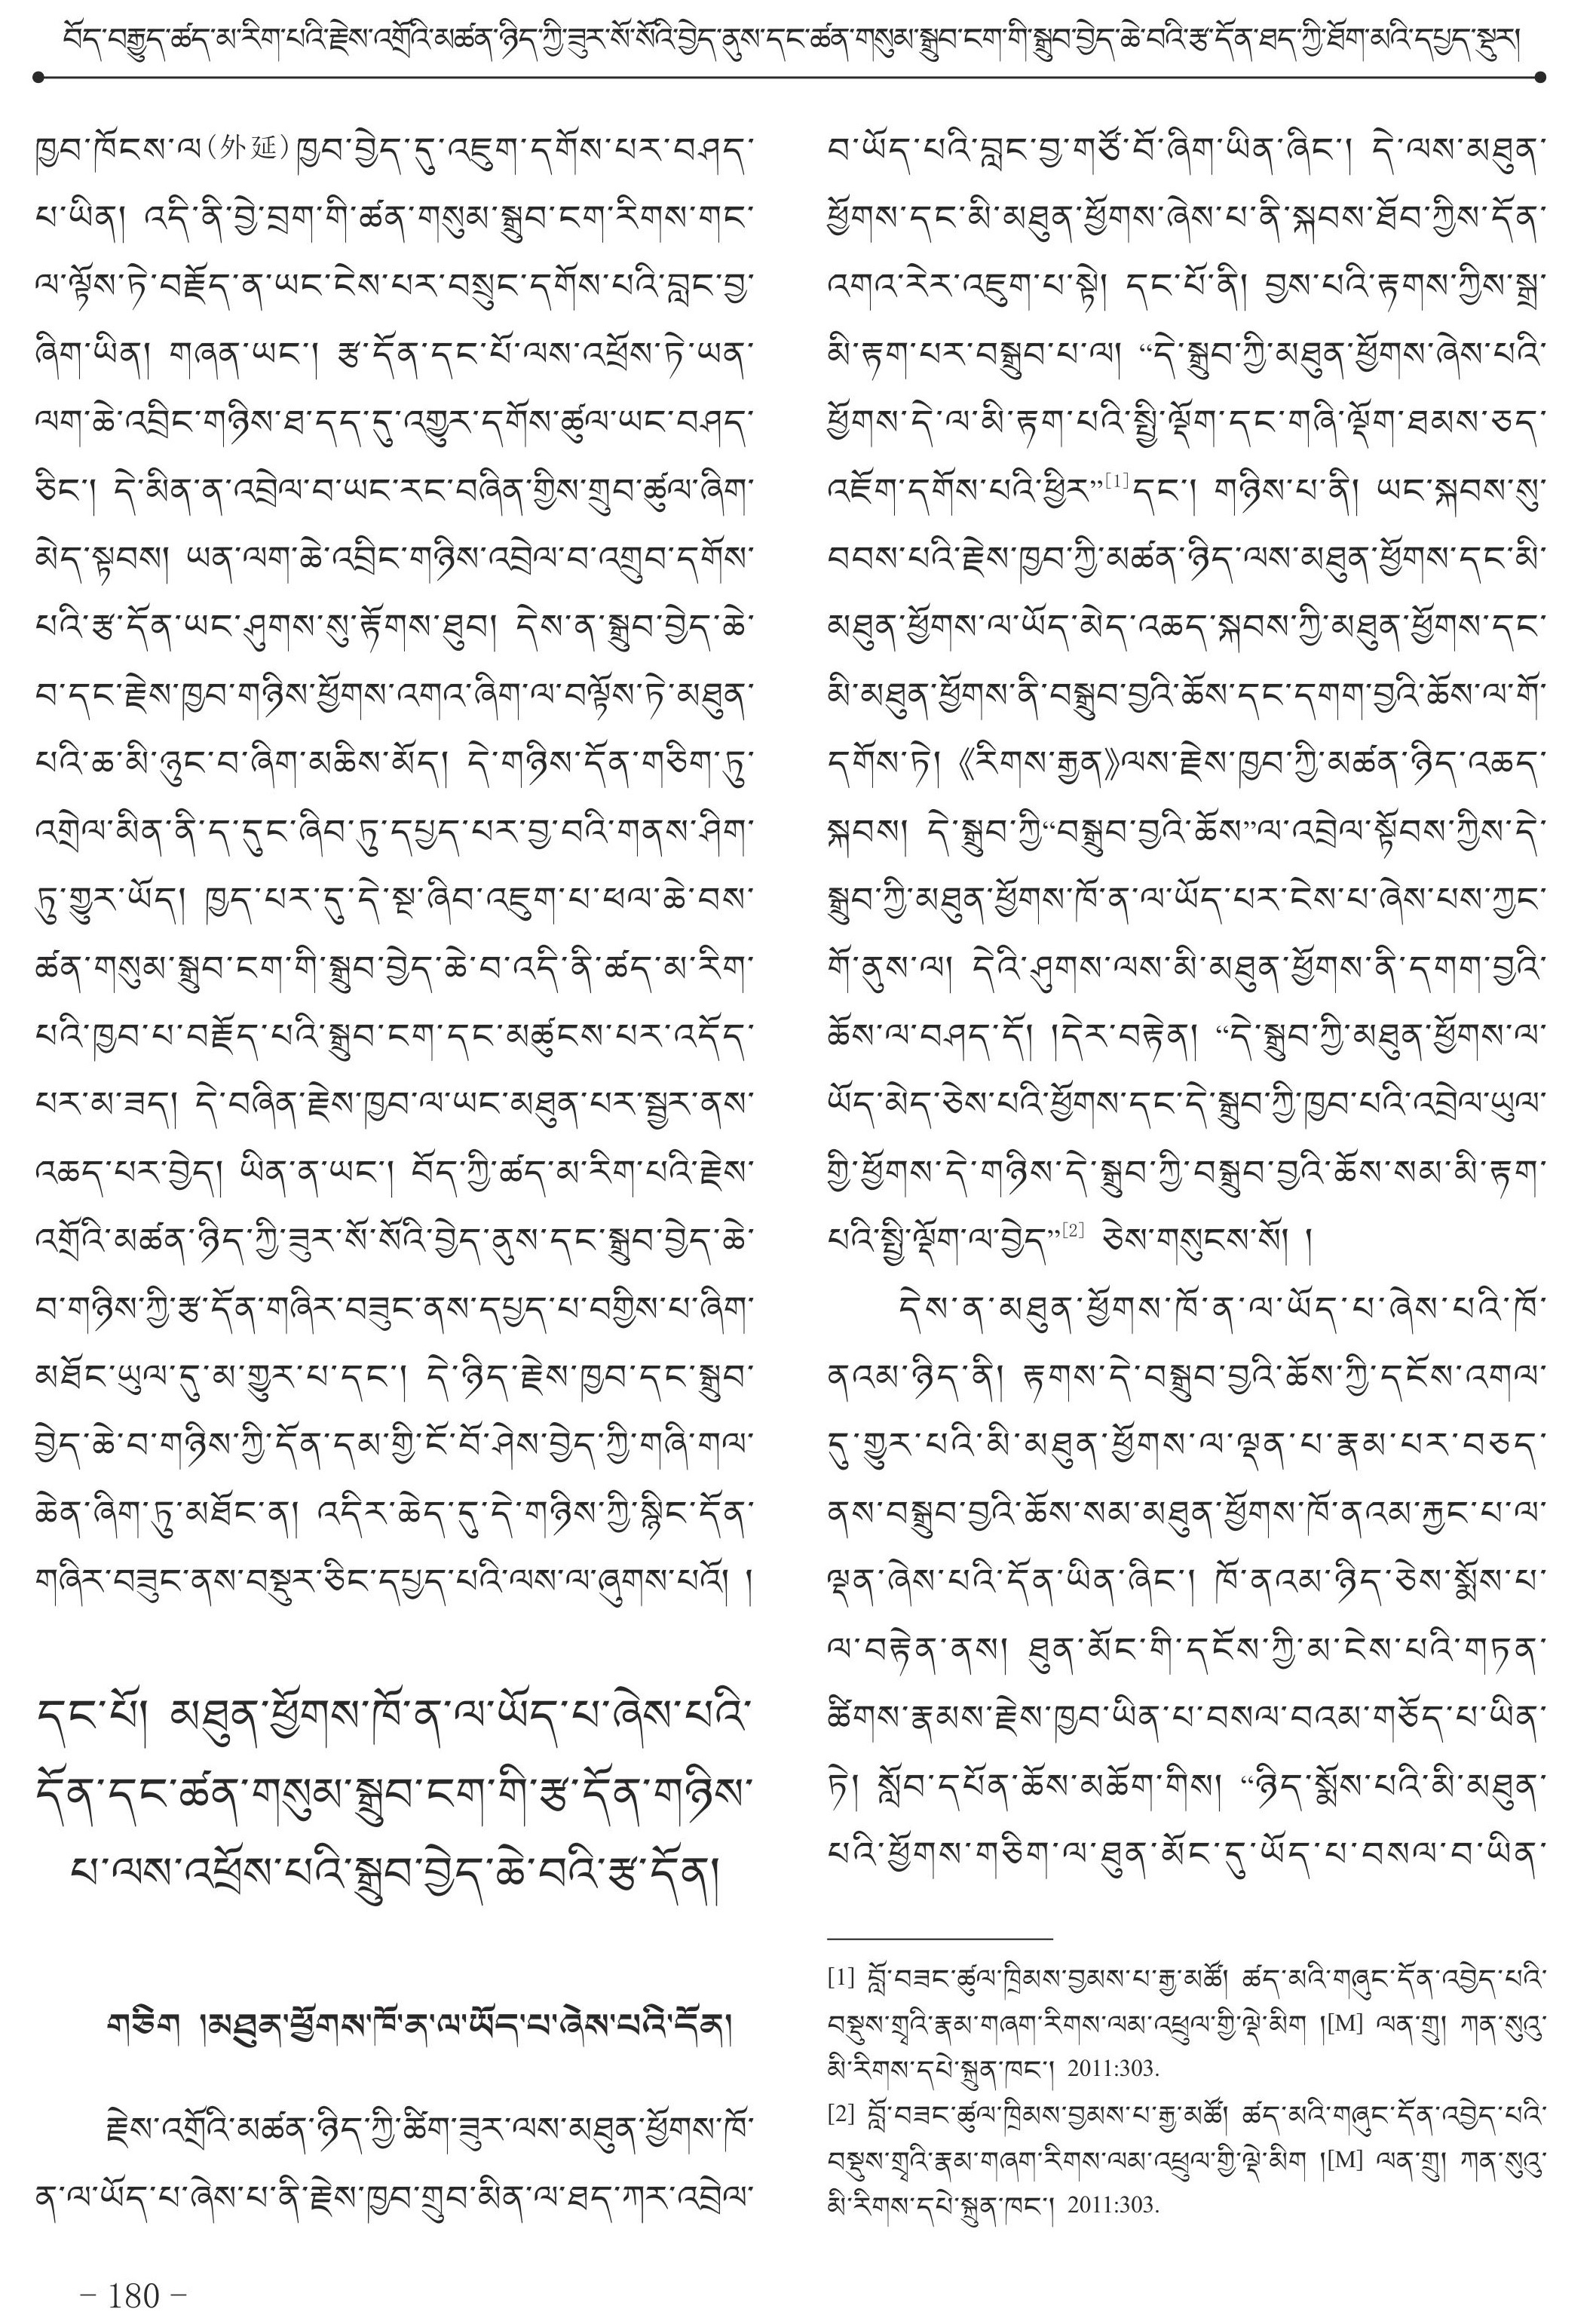 བོད་བརྒྱུད་ཚད་མ་རིག་པའི་རྗེས་འགྲོའི་མཚན་ཉིད་ཀྱི་ཟུར་སོ་སོའི་བྱེད་ནུས་དང་ཚན་གསུམ་སྒྲུབ་ངག་གི་སྒྲུབ་བྱེད་ཆེ་བའི་རྩ་དོན་ཐད་ཀྱི་ཐོག་མའི་དཔྱད་སྡུར།
ཁྱབ་ཁོངས་ལ(外延)ཁྱབ་བྱེད་དུ་འཇུག་དགོས་པར་བཤད་
པ་ཡིན། འདི་ནི་བྱེ་བྲག་གི་ཚན་གསུམ་སྒྲུབ་ངག་རིགས་གང་
ལ་ལྟོས་ཏེ་བརྗོད་ན་ཡང་ངེས་པར་བསྲུང་དགོས་པའི་བླང་བྱ་
ཞིག་ཡིན། གཞན་ཡང་། རྩ་དོན་དང་པོ་ལས་འཕྲོས་ཏེ་ཡན་
ལག་ཆེ་འབྲིང་གཉིས་ཐ་དད་དུ་འགྱུར་དགོས་ཚུལ་ཡང་བཤད་
ཅིང་། དེ་མིན་ན་འབྲེལ་བ་ཡང་རང་བཞིན་གྱིས་གྲུབ་ཚུལ་ཞིག་
མེད་སྟབས། ཡན་ལག་ཆེ་འབྲིང་གཉིས་འབྲེལ་བ་འགྲུབ་དགོས་
པའི་རྩ་དོན་ཡང་ཤུགས་སུ་རྟོགས་ཐུབ། དེས་ན་སྒྲུབ་བྱེད་ཆེ་
བ་དང་རྗེས་ཁྱབ་གཉིས་ཕྱོགས་འགའ་ཞིག་ལ་བལྟོས་ཏེ་མཐུན་
པའི་ཆ་མི་ཉུང་བ་ཞིག་མཆིས་མོད། དེ་གཉིས་དོན་གཅིག་ཏུ་
འགྲེལ་མིན་ནི་ད་དུང་ཞིབ་ཏུ་དཔྱད་པར་བྱ་བའི་གནས་ཤིག་
ཏུ་གྱུར་ཡོད། ཁྱད་པར་དུ་དེ་སྔ་ཞིབ་འཇུག་པ་ཕལ་ཆེ་བས་
ཚན་གསུམ་སྒྲུབ་ངག་གི་སྒྲུབ་བྱེད་ཆེ་བ་འདི་ནི་ཚད་མ་རིག་
པའི་ཁྱབ་པ་བརྗོད་པའི་སྒྲུབ་ངག་དང་མཚུངས་པར་འདོད་
པར་མ་ཟད། དེ་བཞིན་རྗེས་ཁྱབ་ལ་ཡང་མཐུན་པར་སྦྱར་ནས་
འཆད་པར་བྱེད། ཡིན་ན་ཡང་། བོད་ཀྱི་ཚད་མ་རིག་པའི་རྗེས་
འགྲོའི་མཚན་ཉིད་ཀྱི་ཟུར་སོ་སོའི་བྱེད་ནུས་དང་སྒྲུབ་བྱེད་ཆེ་
བ་གཉིས་ཀྱི་རྩ་དོན་གཞིར་བཟུང་ནས་དཔྱད་པ་བགྱིས་པ་ཞིག་
མཐོང་ཡུལ་དུ་མ་གྱུར་པ་དང་། དེ་ཉིད་རྗེས་ཁྱབ་དང་སྒྲུབ་
བྱེད་ཆེ་བ་གཉིས་ཀྱི་དོན་དམ་གྱི་ངོ་བོ་ཤེས་བྱེད་ཀྱི་གཞི་གལ་
ཆེན་ཞིག་ཏུ་མཐོང་ན། འདིར་ཆེད་དུ་དེ་གཉིས་ཀྱི་སྙིང་དོན་
གཞིར་བཟུང་ནས་བསྡུར་ཅིང་དཔྱད་པའི་ལས་ལ་ཞུགས་པའོ། །
དང་པོ། མཐུན་ཕྱོགས་ཁོ་ན་ལ་ཡོད་པ་ཞེས་པའི་
དོན་དང་ཚན་གསུམ་སྒྲུབ་ངག་གི་རྩ་དོན་གཉིས་
པ་ལས་འཕྲོས་པའི་སྒྲུབ་བྱེད་ཆེ་བའི་རྩ་དོན།
གཅིག །མཐུན་ཕྱོགས་ཁོ་ན་ལ་ཡོད་པ་ཞེས་པའི་དོན།
རྗེས་འགྲོའི་མཚན་ཉིད་ཀྱི་ཚིག་ཟུར་ལས་མཐུན་ཕྱོགས་ཁོ་
ན་ལ་ཡོད་པ་ཞེས་པ་ནི་རྗེས་ཁྱབ་གྲུབ་མིན་ལ་ཐད་ཀར་འབྲེལ་
བ་ཡོད་པའི་བླང་བྱ་གཙོ་བོ་ཞིག་ཡིན་ཞིང་། དེ་ལས་མཐུན་
ཕྱོགས་དང་མི་མཐུན་ཕྱོགས་ཞེས་པ་ནི་སྐབས་ཐོབ་ཀྱིས་དོན་
འགའ་རེར་འཇུག་པ་སྟེ། དང་པོ་ནི། བྱས་པའི་རྟགས་ཀྱིས་སྒྲ་
མི་རྟག་པར་བསྒྲུབ་པ་ལ། “དེ་སྒྲུབ་ཀྱི་མཐུན་ཕྱོགས་ཞེས་པའི་
ཕྱོགས་དེ་ལ་མི་རྟག་པའི་སྤྱི་ལྡོག་དང་གཞི་ལྡོག་ཐམས་ཅད་
འཇོག་དགོས་པའི་ཕྱིར”[1]དང་། གཉིས་པ་ནི། ཡང་སྐབས་སུ་
བབས་པའི་རྗེས་ཁྱབ་ཀྱི་མཚན་ཉིད་ལས་མཐུན་ཕྱོགས་དང་མི་
མཐུན་ཕྱོགས་ལ་ཡོད་མེད་འཆད་སྐབས་ཀྱི་མཐུན་ཕྱོགས་དང་
མི་མཐུན་ཕྱོགས་ནི་བསྒྲུབ་བྱའི་ཆོས་དང་དགག་བྱའི་ཆོས་ལ་གོ་
དགོས་ཏེ། 《རིགས་རྒྱན》ལས་རྗེས་ཁྱབ་ཀྱི་མཚན་ཉིད་འཆད་
སྐབས། དེ་སྒྲུབ་ཀྱི“བསྒྲུབ་བྱའི་ཆོས”ལ་འབྲེལ་སྟོབས་ཀྱིས་དེ་
སྒྲུབ་ཀྱི་མཐུན་ཕྱོགས་ཁོ་ན་ལ་ཡོད་པར་ངེས་པ་ཞེས་པས་ཀྱང་
གོ་ནུས་ལ། དེའི་ཤུགས་ལས་མི་མཐུན་ཕྱོགས་ནི་དགག་བྱའི་
ཆོས་ལ་བཤད་དོ། །དེར་བརྟེན། “དེ་སྒྲུབ་ཀྱི་མཐུན་ཕྱོགས་ལ་
ཡོད་མེད་ཅེས་པའི་ཕྱོགས་དང་དེ་སྒྲུབ་ཀྱི་ཁྱབ་པའི་འབྲེལ་ཡུལ་
གྱི་ཕྱོགས་དེ་གཉིས་དེ་སྒྲུབ་ཀྱི་བསྒྲུབ་བྱའི་ཆོས་སམ་མི་རྟག་
པའི་སྤྱི་ལྡོག་ལ་བྱེད”[2] ཅེས་གསུངས་སོ། །
དེས་ན་མཐུན་ཕྱོགས་ཁོ་ན་ལ་ཡོད་པ་ཞེས་པའི་ཁོ་
ནའམ་ཉིད་ནི། རྟགས་དེ་བསྒྲུབ་བྱའི་ཆོས་ཀྱི་དངོས་འགལ་
དུ་གྱུར་པའི་མི་མཐུན་ཕྱོགས་ལ་ལྡན་པ་རྣམ་པར་བཅད་
ནས་བསྒྲུབ་བྱའི་ཆོས་སམ་མཐུན་ཕྱོགས་ཁོ་ནའམ་རྐྱང་པ་ལ་
ལྡན་ཞེས་པའི་དོན་ཡིན་ཞིང་། ཁོ་ནའམ་ཉིད་ཅེས་སྨོས་པ་
ལ་བརྟེན་ནས། ཐུན་མོང་གི་དངོས་ཀྱི་མ་ངེས་པའི་གཏན་
ཚིགས་རྣམས་རྗེས་ཁྱབ་ཡིན་པ་བསལ་བའམ་གཅོད་པ་ཡིན་
ཏེ། སློབ་དཔོན་ཆོས་མཆོག་གིས། “ཉིད་སྨོས་པའི་མི་མཐུན་
པའི་ཕྱོགས་གཅིག་ལ་ཐུན་མོང་དུ་ཡོད་པ་བསལ་བ་ཡིན་
[1] བློ་བཟང་ཚུལ་ཁྲིམས་བྱམས་པ་རྒྱ་མཚོ། ཚད་མའི་གཞུང་དོན་འབྱེད་པའི་
བསྡུས་གྲྭའི་རྣམ་གཞག་རིགས་ལམ་འཕྲུལ་གྱི་ལྡེ་མིག །[M] ལན་གྲུ། ཀན་སུའུ་
མི་རིགས་དཔེ་སྐྲུན་ཁང་། 2011:303.
[2] བློ་བཟང་ཚུལ་ཁྲིམས་བྱམས་པ་རྒྱ་མཚོ། ཚད་མའི་གཞུང་དོན་འབྱེད་པའི་
བསྡུས་གྲྭའི་རྣམ་གཞག་རིགས་ལམ་འཕྲུལ་གྱི་ལྡེ་མིག །[M] ལན་གྲུ། ཀན་སུའུ་
མི་རིགས་དཔེ་སྐྲུན་ཁང་། 2011:303.
– 180 –